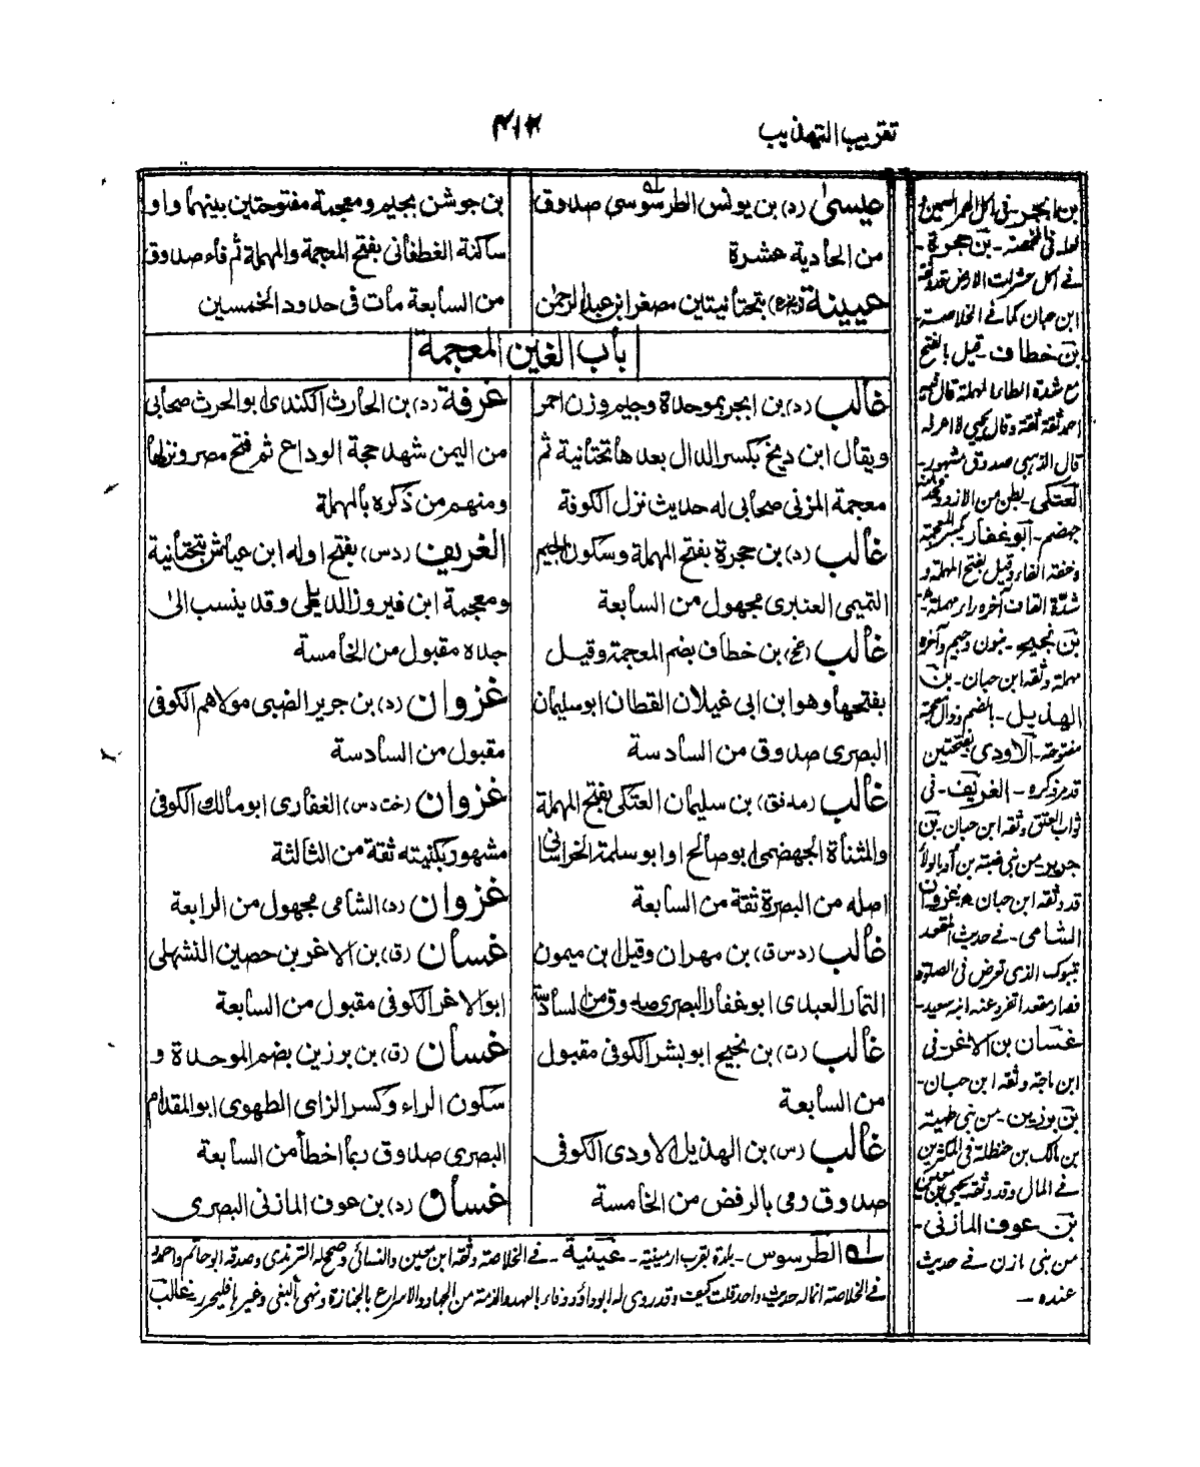 تقريب التهذيب
٤١٢
عيسىٰ (د) بن يونس الطرسوسي صدوق
من الحادية عشرة
عيينة بتحتانيتين مصغر ابن عبد الرحمٰن
بن جوشن بجيم ومعجمة مفتوحتين بينهما واو
ساكنة الغطفاني بفتح المعجمة والمهملة ثم فاء صدوق
من السابعة مات في حدود الخمسين
باب الغين المعجمة
غالب (د) بن ابجر بموحدة وجيم وزن احمر
ويقال ابن ديخ بكسر الدال بعدها تحتانية ثم
معجمة المزني صحابي له حديث نزل الكوفة
غالب (د) بن حجرة بفتح المهملة وسكون الجيم
التميمي العنبري مجهول من السابعة
غالب (عخ) بن خطاف بضم المعجمة وقيل
بفتحها وهو ابن ابي غيلان القطان ابو سليمان
البصري صدوق من السادسة
غالب (مد فق) بن سليمان العتكي بفتح المهملة
والمثناة الجهضمي ابو صالح او ابو سلمة الخراساني
اصله من البصرة ثقة من السابعة
غالب (د س ق) بن مهران وقيل ابن ميمون
التمار العبدي ابو غفار البصري صدوق من السادسة
غالب (ت) بن نجيح ابو بشر الكوفي مقبول
من السابعة
غالب (س) بن الهذيل الاودي الكوفي
صدوق رمي بالرفض من الخامسة
غرفة (د) بن الحارث الكندي ابو الحرث صحابي
من اليمن شهد حجة الوداع ثم فتح مصر ونزلها
ومنهم من ذكره بالمهملة
الغريف (د س) بفتح اوله ابن عياش بتحتانية
ومعجمة ابن فيروز الديلمي وقد ينسب الىٰ
جده مقبول من الخامسة
غزوان (د) بن جرير الضبي مولاهم الكوفي
مقبول من السادسة
غزوان (خت د س) الغفاري ابو مالك الكوفي
مشهور بكنيته ثقة من الثالثة
غزوان (د) الشامي مجهول من الرابعة
غسان (ق) بن الاغر بن حصين النهشلي
ابو الاغر الكوفي مقبول من السابعة
غسان (ق) بن برزين بضم الموحدة و
سكون الراء وكسر الزاي الطهوي ابو المقدام
البصري صدوق ربما اخطأ من السابعة
غسان (د) بن عوف المازني البصري
الطرسوس - بلدة بقرب ارمينية - عيينة - في الخلاصة وثقه ابن معين والنسائي وصحح له الترمذي وصدقه ابو حاتم واحمد
في الخلاصة انما له حديث واحد قلت كيف وقد روى له ابو داؤد
بن ابجر - في اكل الحمر
بن حجرة -
في اكل حشرات الارض
ابن حبان كما في الخلاصة -
بن خطاف - قيل بالفتح
مع شدة الطاء المهملة قال فيه
احمد ثقة ثقة وقال يحيى لا اعرفه
قال الذهبي صدوق مشهور -
العتكي - بطن من الازد
جهضم - ابو غفار بكسر المعجمة
وخفة الفاء وقيل بفتح المهملة و
شدة القاف آخره راء مهملة
بن نجيح - بنون وجيم وآخره
مهملة وثقه ابن حبان - بن
الهذيل - بالضم وذال معجمة
مفتوحة - الاودي بفتحتين
قد مر ذكره - الغريف - في
ثواب العتق وثقه ابن حبان - بن
جرير - من بني ضبة بن اد بالولاء
قد وثقه ابن حبان غزوان
الشامي - في حديث المقعد
بتبوك الذي تعرض في الصلوة
فصار مقعدا تفرد عنه ابنه سعيد -
غسان بن الاغر - في
ابن ماجة وثقه ابن حبان -
بن برزين - من بني طهية
بن مالك بن حنظلة في المكثرين
في المال وقد وثقه يحيى بن معين
بن عوف المازني -
من بني مازن - في حديث
عنده -